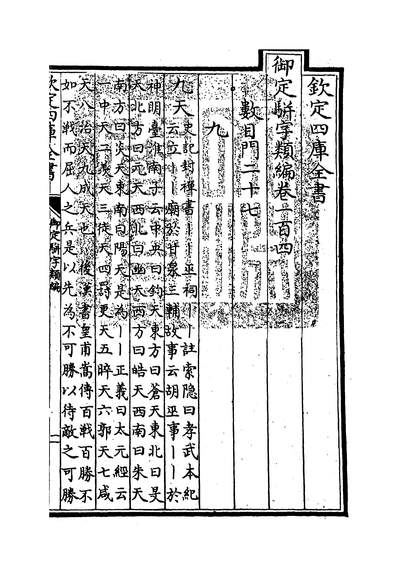 欽定四庫全書
御定駢字類編卷一百四
數目門二十七
九
九天史記封禪書一一巫祠一一註索隐曰孝武本紀
云立一一廟於甘泉三輔故事云胡巫事一一於
神明臺淮南子云中央曰鈞天東方曰蒼天東北曰旻
天北方曰元天西北曰幽天西方曰皓天西南曰朱天
南方曰炎天東南曰陽天是為一一正義曰太元經云
一中天二羡天三從天四罰更天五晬天六郭天七咸
天八治天九成天也一後漢書皇甫嵩傳百戰百勝不
如不戰而屈人之兵是以先為不可勝以待敵之可勝
欽定四庫全書
御定駢字類編
一